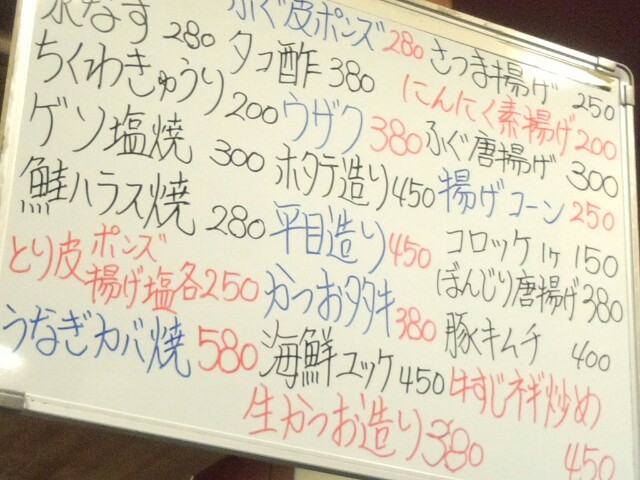 水なす 280
ちくわきゅうり 200
ゲソ塩焼 300
鮭ハラス焼 280
とり皮 ポンズ
揚げ塩 各250
うなぎカバ焼 580
ふぐ皮ポンズ 280
タコ酢 380
ウザク 380
ホタテ造り 450
平目造り 450
かつおタタキ 380
海鮮ユッケ 450
生かつお造り 380
さつま揚げ 250
にんにく素揚げ 200
ふぐ唐揚げ 300
揚げコーン 250
コロッケ1ヶ 150
ぼんじり唐揚げ 380
豚キムチ 400
牛すじネギ炒め
450